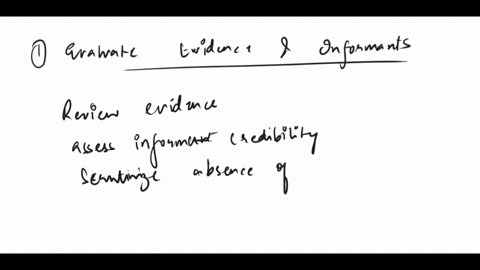 ① Evaluate Evidence & Informants
Review evidence
assess informant credibility
Scrutinize absence of